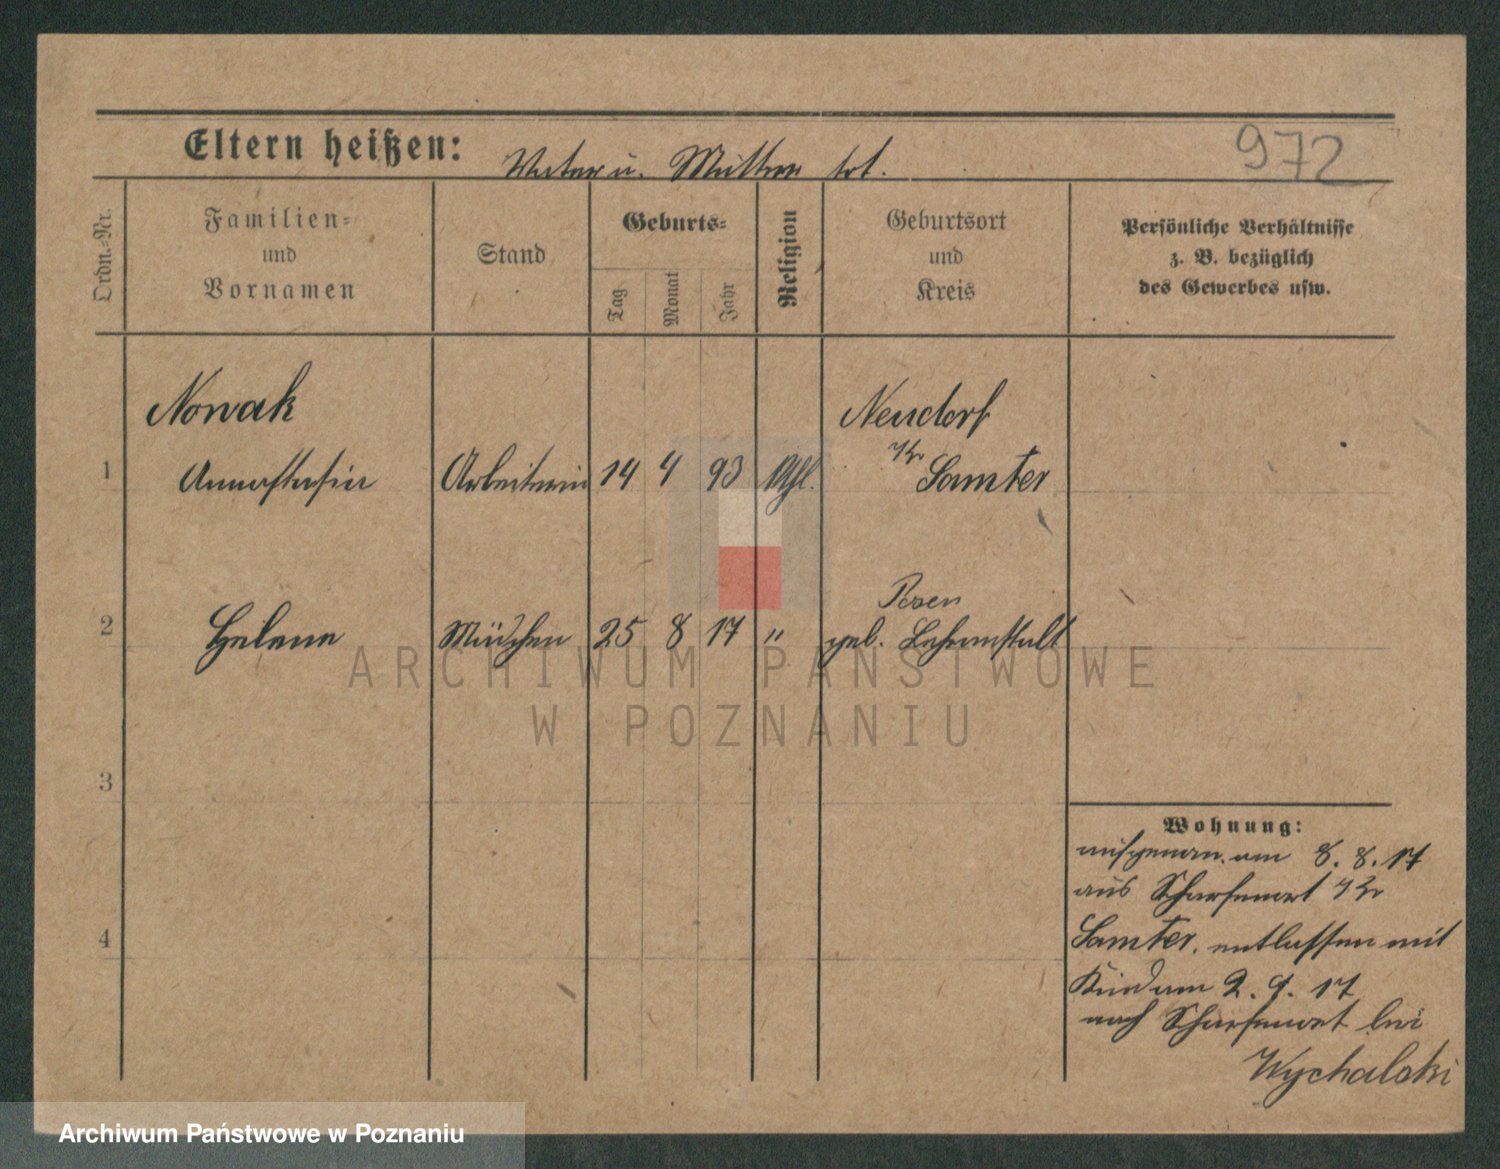 Eltern heißen: Vater u. Mutter tot.
972
Ordn.=Nr.
Familien=
und
Vornamen
Stand
Geburts=
Tag
Monat
Jahr
Religion
Geburtsort
und
Kreis
Persönliche Verhältnisse
z. B. bezüglich
des Gewerbes usw.
Nowak
Neudorf
1 Annastasia Arbeiterin 14 4 93 Kr Samter
Posen
2 Helene Mädchen 25 8 17 " geb. Lehranstalt
ARCHIWUM PAŃSTWOWE
W POZNANIU
3
4
Wohnung:
aufgenom. am 8. 8. 17
aus Scharfenort Kr
Samter, entlassen mit
Kind am 2. 9. 17
nach Scharfenort bei
Wychalski
Archiwum Państwowe w Poznaniu